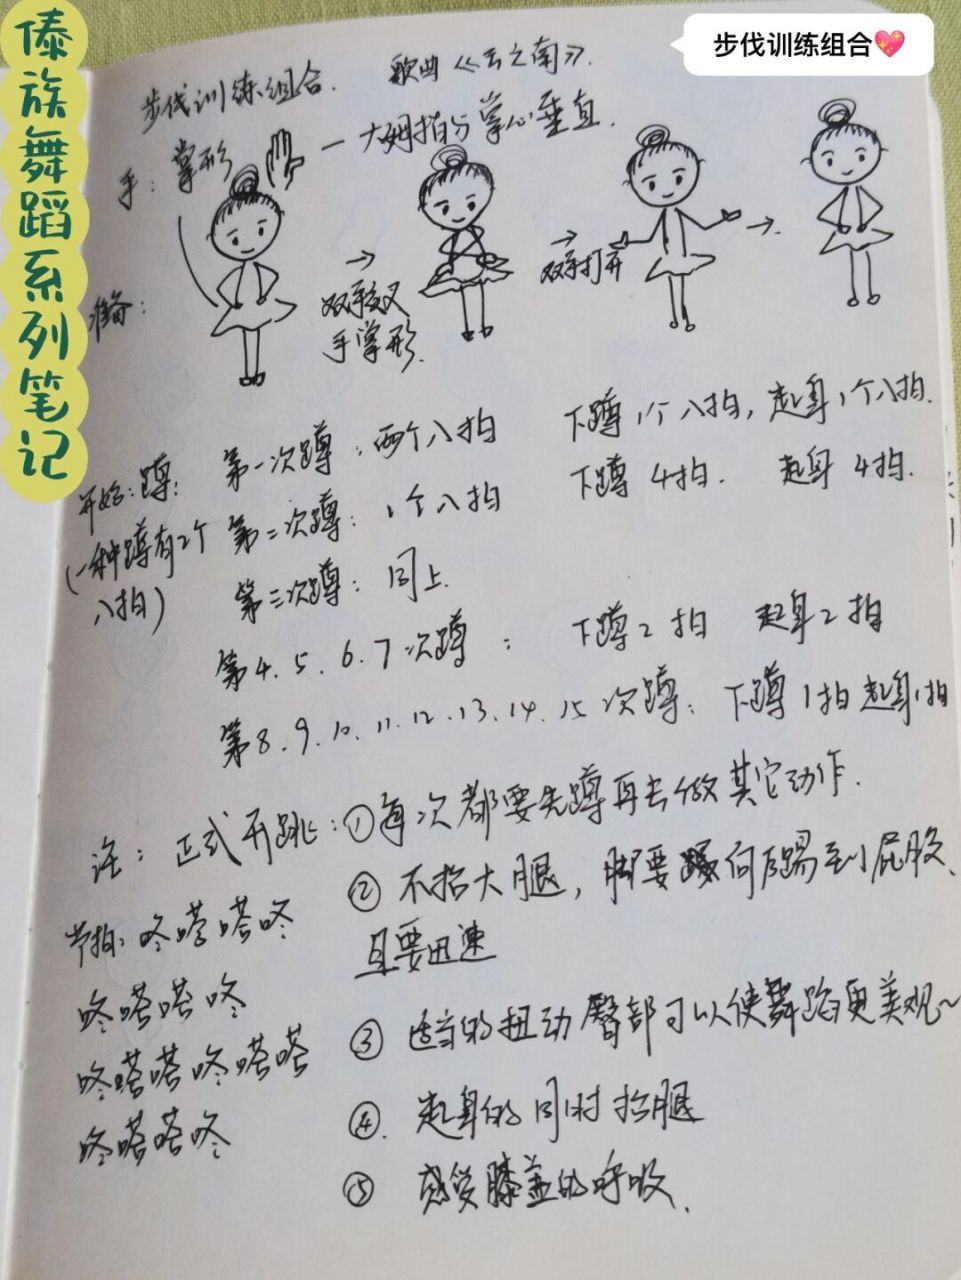 傣族舞蹈系列笔记
步伐训练组合💖
步伐训练组合. 歌曲《云之南》.
手:掌形 — 大姆指与掌心垂直.
准备:
→
双手交叉
手掌形.
→
双手打开
→
开始:蹲:
(一种蹲有2个
八拍)
第一次蹲:两个八拍 下蹲1个八拍,起身1个八拍.
第二次蹲:1个八拍 下蹲4拍. 起身4拍.
第三次蹲:同上.
第4.5.6.7次蹲: 下蹲2拍 起身2拍
第8.9.10.11.12.13.14.15次蹲:下蹲1拍起身1拍
注:正式开跳:①每次都要先蹲再去做其它动作.
②不抬大腿,脚要向后踢到屁股、
且要迅速
③适当的扭动臀部可以使舞蹈更美观~
④.起身的同时抬腿
⑤感受膝盖的呼吸.
节拍:咚嗒嗒咚
咚嗒嗒咚
咚嗒嗒咚嗒嗒
咚嗒嗒咚